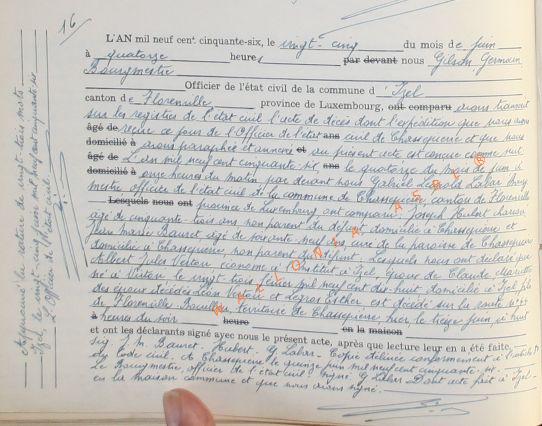 16
L'AN mil neuf cent cinquante-six, le vingt-cinq du mois de juin
à quatorze heures par devant nous Gilson Germain
Bourgmestre
Officier de l'état civil de la commune d'Izel
canton de Florenville province de Luxembourg, ont comparu avons transcrit
sur les registres de l'état civil l'acte de décès dont l'expédition que nous avons
âgé de reçue ce jour de l'Officier de l'état ans civil de Chassepierre et que nous
domicilié à avons paraphée et annexée et au présent acte est conçue comme suit
âgé de L'an mil neuf cent cinquante six, ans le quatorze du mois de juin à
domicilié à onze heures du matin par devant nous Gabriel Léopold Labar bourg
mestre officier de l'état civil de la commune de Chassepierre, canton de Florenville
Lesquels nous ont province de Luxembourg ont comparu Joseph Hubert
âgé de cinquante-trois ans non parent du défunt, domicilié à Chassepierre et
Jean Marie Bauret âgé de soixante neuf ans, curé de la paroisse de Chassepierre
domicilié à Chassepierre, non parent du défunt. Lesquels nous ont déclaré que
Albert Jules Veston, économe à l'Institut à Izel, époux de Claude
né à le vingt trois février mil neuf cent dix huit, domicilié à Izel, fils
des époux décédés Léon et Legros Esther est décédé sur la route
de Florenville Bouillon, territoire de Chassepierre, hier, le treize juin, à huit
à heures du soir heure en la maison
et ont les déclarants signé avec nous le présent acte, après que lecture leur en a été faite.
sig J. M. Bauret. Hubert. G Labar - Copie délivrée conformément à l'article
du Code civil. A Chassepierre le quinze juin mil neuf cent cinquante six.
Le Bourgmestre, officier de l'état civil signé G Labar Dont acte fait à Izel
en la maison commune et que nous avons signé.
Approuvé la rature de vingt-trois mots
Izel, le vingt-cinq juin mil neuf cent cinquante six
L'Officier de l'état civil